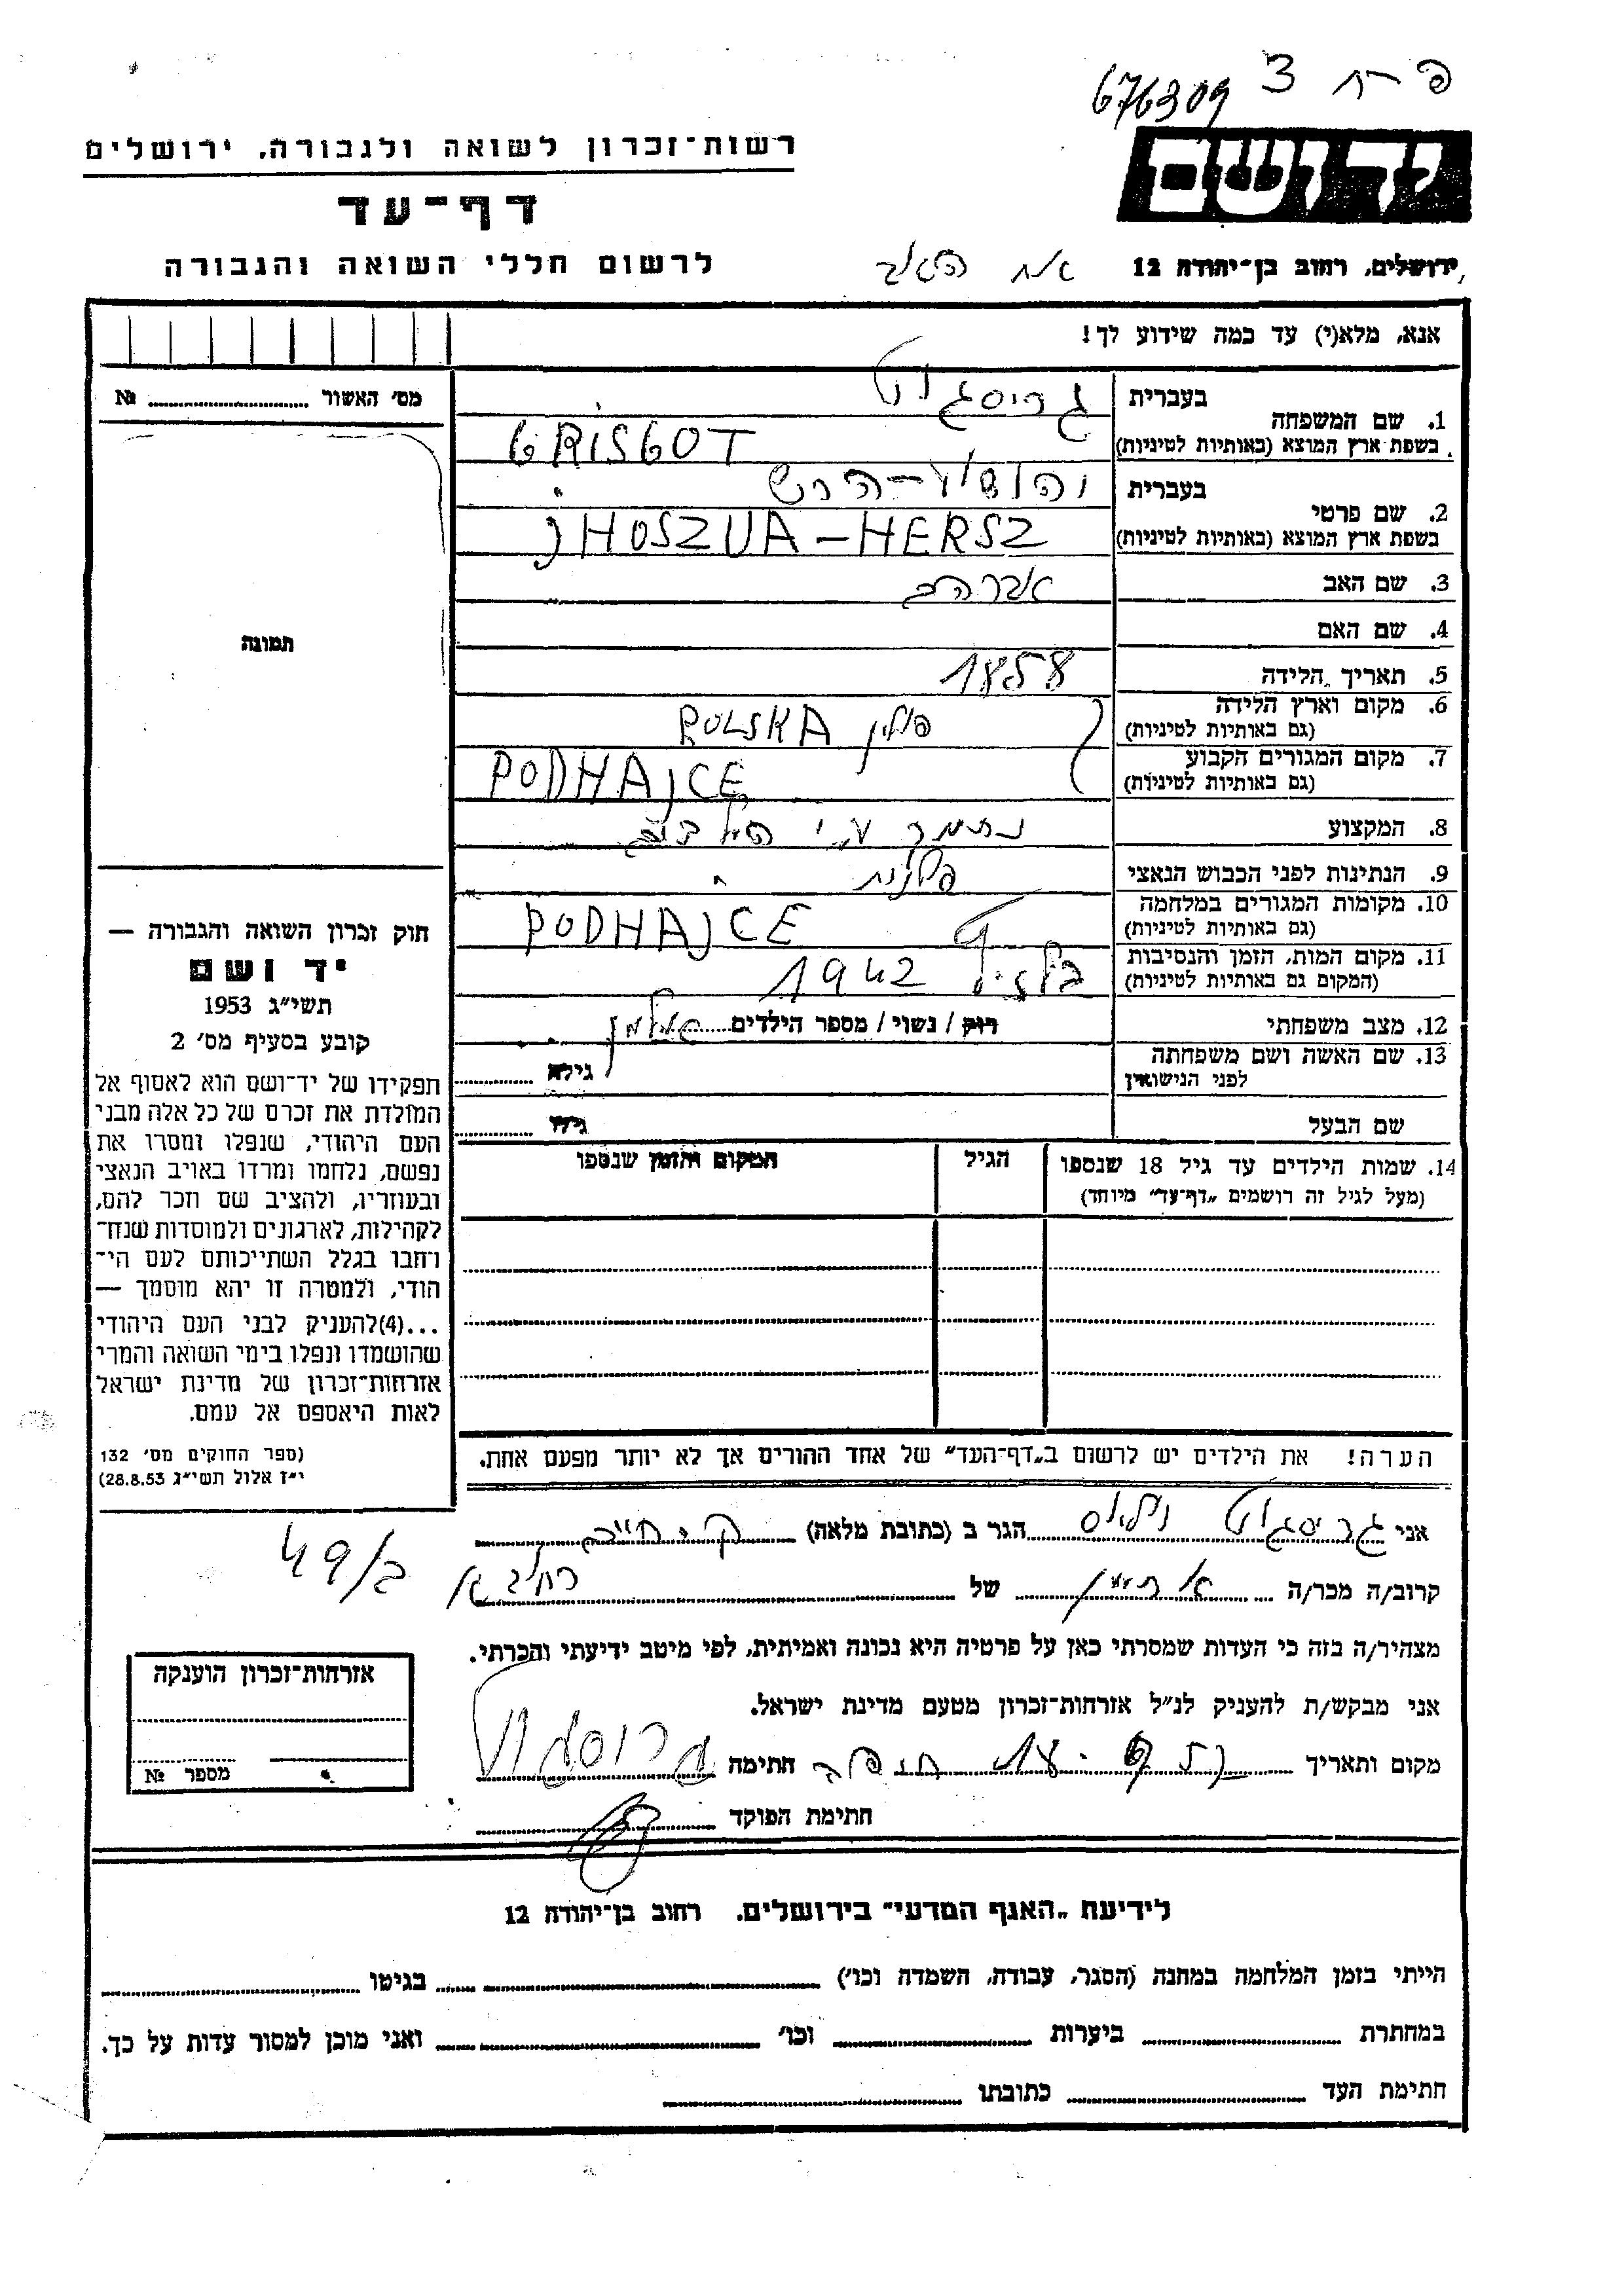 676309 3
רשות־זכרון לשואה ולגבורה, ירושלים
ידושם
דף־עד
לרשום חללי השואה והגבורה
ירושלים, רחוב בן־יהודה 12
אנא, מלא(י) עד כמה שידוע לך!
מס׳ האשור № ....................
1. שם המשפחה
בעברית גריסגוט
בשפת ארץ המוצא (באותיות לטיניות) GRISGOT
2. שם פרטי
בעברית יהושע-הרש
בשפת ארץ המוצא (באותיות לטיניות) JHOSZUA-HERSZ
3. שם האב אברהם
4. שם האם
5. תאריך הלידה 1858
6. מקום וארץ הלידה
(גם באותיות לטיניות) פולין POLSKA
7. מקום המגורים הקבוע
(גם באותיות לטיניות) PODHAJCE
8. המקצוע נתמך ע״י הילדים
9. הנתינות לפני הכבוש הנאצי פולנית
10. מקומות המגורים במלחמה
(גם באותיות לטיניות) PODHAJCE
11. מקום המות, הזמן והנסיבות
(המקום גם באותיות לטיניות) 1942
12. מצב משפחתי רוק / נשוי / מספר הילדים אלמן
13. שם האשה ושם משפחתה
לפני הנישואין גילה
שם הבעל גילו
14. שמות הילדים עד גיל 18 שנספו
(מעל לגיל זה רושמים „דף־עד״ מיוחד)
הגיל
המקום והזמן שנספו
תמונה
חוק זכרון השואה והגבורה —
יד ושם
תשי״ג 1953
קובע בסעיף מס׳ 2
תפקידו של יד־ושם הוא לאסוף אל
המולדת את זכרם של כל אלה מבני
העם היהודי, שנפלו ומסרו את
נפשם, נלחמו ומרדו באויב הנאצי
ובעוזריו, ולהציב שם וזכר להם,
לקהילות, לארגונים ולמוסדות שנח־
רחבו בגלל השתייכותם לעם הי־
הודי, ולמטרה זו יהא מוסמך —
...(4)להעניק לבני העם היהודי
שהושמדו ונפלו בימי השואה והמרי
אזרחות־זכרון של מדינת ישראל
לאות היאספם אל עמם.
(ספר החוקים מס׳ 132
י״ז אלול תשי״ג 28.8.53)
הערה! את הילדים יש לרשום ב„דף־העד״ של אחד ההורים אך לא יותר מפעם אחת.
אני גריסגוט הגר ב (כתובת מלאה)
קרוב/ה מכר/ה של
49/ב
מצהיר/ה בזה כי העדות שמסרתי כאן על פרטיה היא נכונה ואמיתית, לפי מיטב ידיעתי והכרתי.
אני מבקש/ת להעניק לנ״ל אזרחות־זכרון מטעם מדינת ישראל.
מקום ותאריך חתימה
חתימת הפוקד
אזרחות־זכרון הוענקה
מספר №
לידיעת „האגף המדעי״ בירושלים, רחוב בן־יהודה 12
הייתי בזמן המלחמה במחנה (הסגר, עבודה, השמדה וכו׳) בגיטו
במחתרת ביערות וכו׳ ואני מוכן למסור עדות על כך.
חתימת העד כתובתו